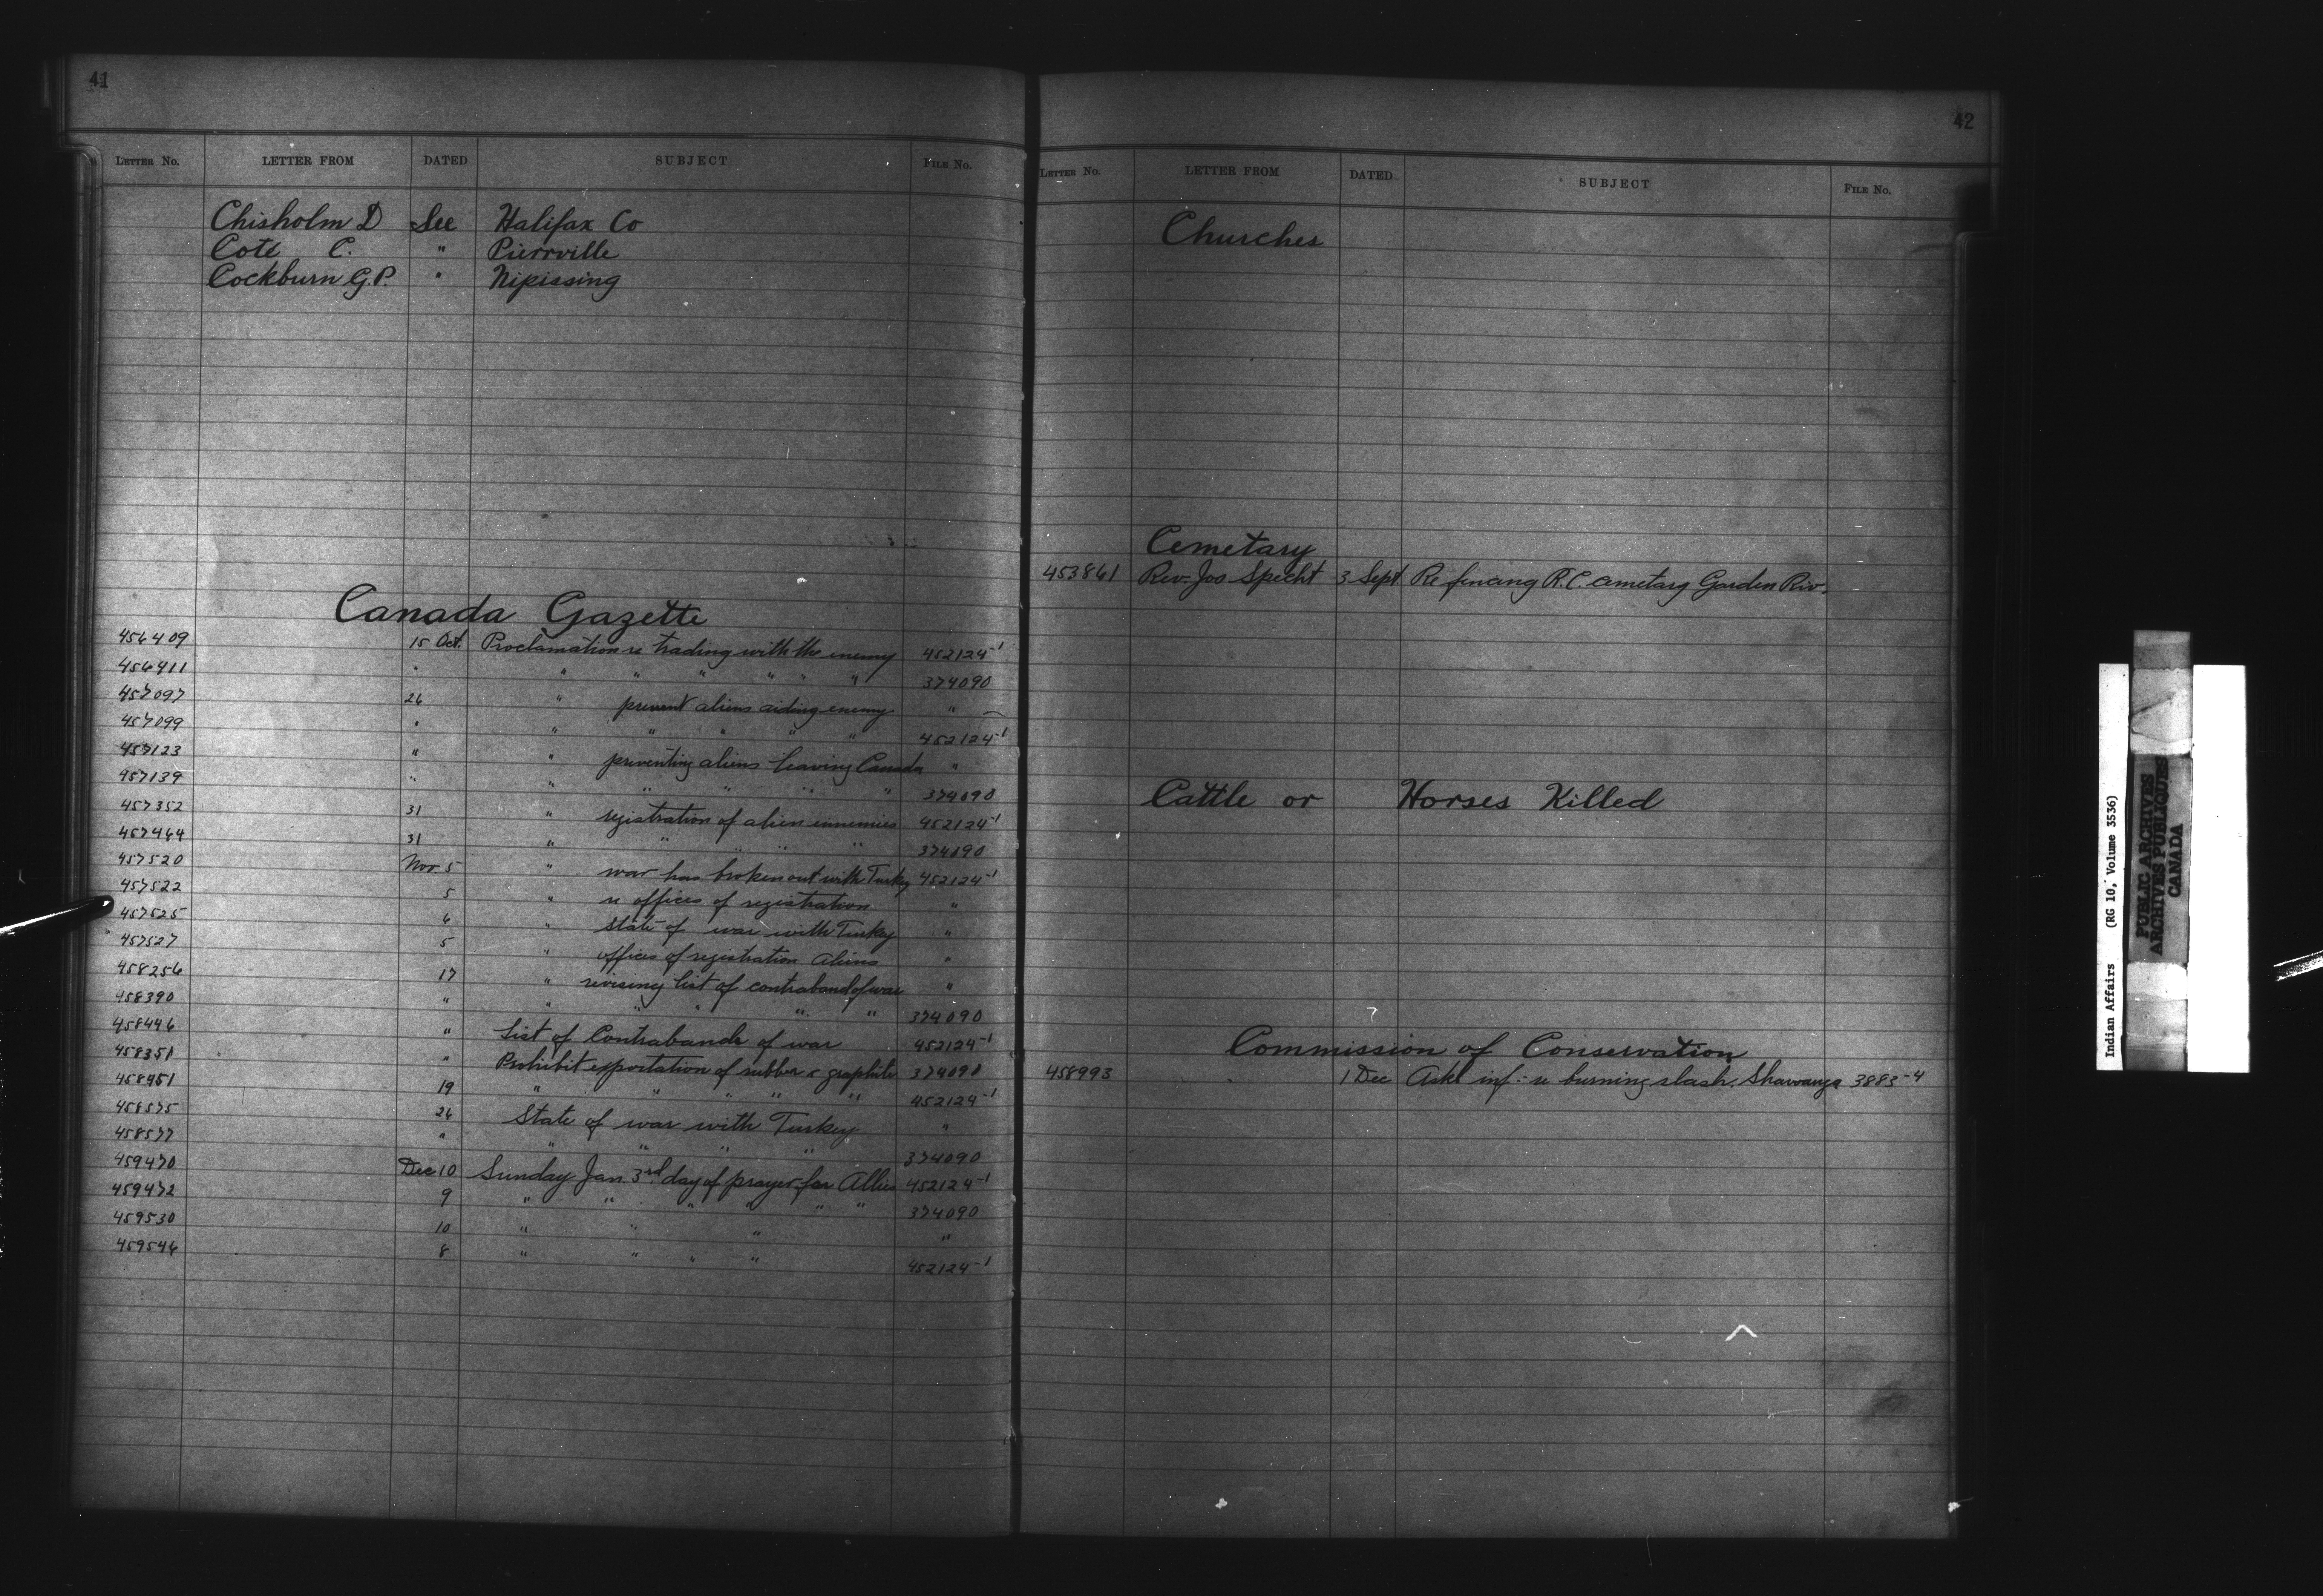 41
LETTER No. LETTER FROM DATED SUBJECT FILE No.
Chisholm D See Halifax Co
Coté C. " Pierrville
Cockburn G.P. " Nipissing
Canada Gazette
456409 15 Oct. Proclamation re trading with the enemy 452124-1
456411 " " " " " " " 374090
457097 26 " prevent aliens aiding enemy "
457099 " " " " " " 452124-1
457123 " " preventing aliens leaving Canada "
457139 " " " " " " 374090
457352 31 " registration of alien ennemies 452124-1
457464 31 " " " " " 374090
457520 Nov 5 " war has broken out with Turkey 452124-1
457522 5 " re offices of registration "
457525 6 " state of war with Turkey "
457527 5 " offices of registration aliens "
458256 17 " revising list of contraband of war "
458390 " " " " " " 374090
458446 " List of Contrabands of war 452124-1
458351 " Prohibit exportation of rubber & graphite 374090
458451 19 " " " " " 452124-1
458575 26 State of war with Turkey "
458577 " " " " " 374090
459470 Dec 10 Sunday Jan. 3rd day of prayer for Allies 452124-1
459472 9 " " " " " " 374090
459530 10 " " " "
459546 8 " " " " 452124-1
42
LETTER No. LETTER FROM DATED SUBJECT FILE No.
Churches
Cemetary
453861 Rev. Jos Specht 3 Sept Re fencing R.C. cemetary Garden Riv.
Cattle or Horses Killed
Commission of Conservation
458993 1 Dec Ask inf: re burning slash, Shawanga 3883-4
Indian Affairs (RG 10, Volume 3536)
PUBLIC ARCHIVES
ARCHIVES PUBLIQUES
CANADA